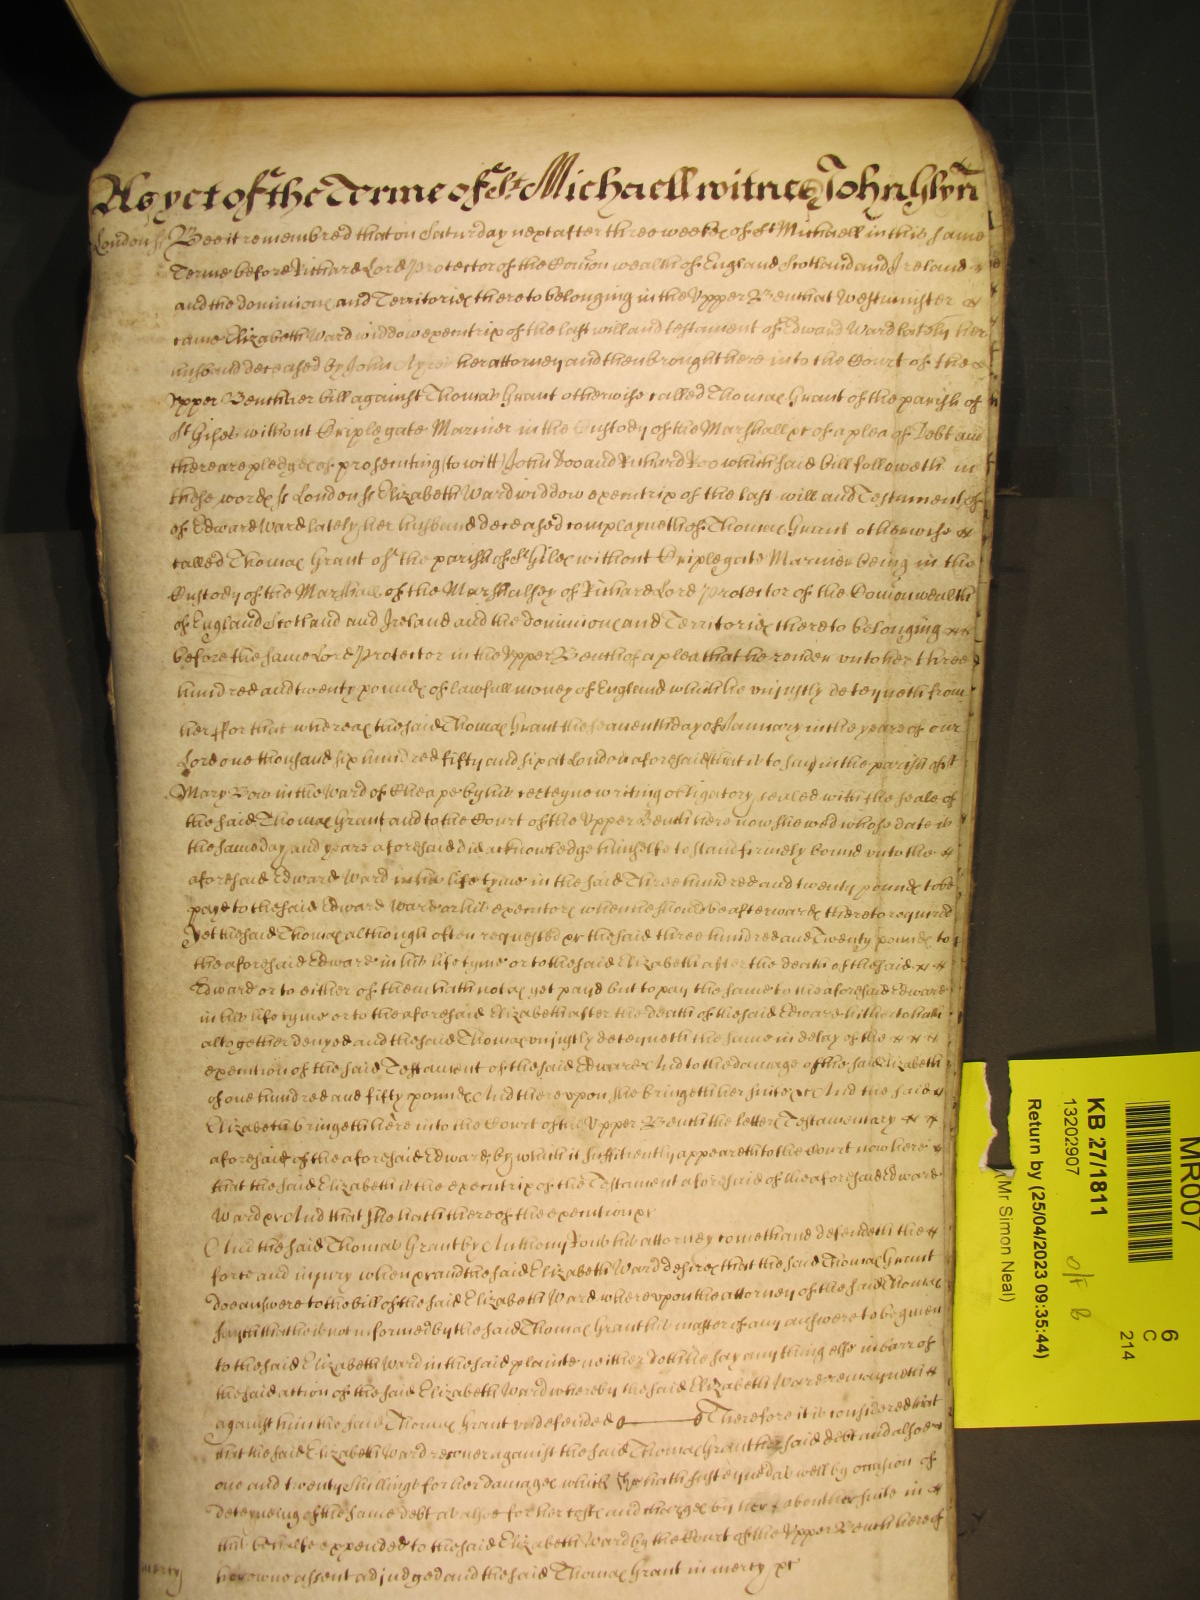 As yet of the Terme of St Michaell witnes John Glyn
London ss Bee it remembred that on Saturday next after three weekes of St Michaell in this same
Terme before Richard Lord Protector of the Comon wealth of England Scotland and Ireland
and the dominions and Territories thereto belonging in the Vpper Bench at Westminster
came Elizabeth Ward widdow executrix of the last will and testament of Edward Ward lately her
husband deceased by John Ayres her attorney and then brought here into the Court of the
Vpper Bench her bill against Thomas Grant otherwise called Thomas Grant of the parish of
St Giles without Criplegate Marriner in the Custody of the Marshall &c of a plea of Debt and
there are pledges of prosecuting to witt John Doo and Richard Roo which said bill followeth in
these words ss London ss Elizabeth Ward widdow executrix of the last will and Testament of
of Edward Ward lately her husband deceased complayneth of Thomas Grant otherwise
called Thomas Grant of the parish of St Giles without Criplegate Marriner being in the
Custody of the Marshall of the Marshalsey of Richard Lord Protector of the Comonwealth
of England Scotland and Ireland and the dominions and Territories thereto belonging
before the same Lord Protector in the Vpper Bench of a plea that he render vnto her three
hundred and twenty pounds of lawfull money of England which he vniustly deteyneth from
her ffor that whereas the said Thomas Grant the seaventh day of January in the yeare of our
Lord one thousand six hundred fifty and six at London aforesaid that is to say in the parish of St
Mary Bow in the Ward of Cheape by his certeyne writing obligatory sealed with the seale of
the said Thomas Grant and to the Court of the Vpper Bench here now shewed whose date is
the same day and yeare aforesaid did acknowledge himselfe to stand firmely bound vnto the
aforesaid Edward Ward in his life tyme in the said Three hundred and twenty pounds to be
payd to the said Edward Ward or his executors when he should be afterwards thereto required
Yet the said Thomas although often requested &c the said three hundred and Twenty pounds to
the aforesaid Edward in his life tyme or to the said Elizabeth after the death of the said
Edward or to either of them hath not as yet payd but to pay the same to the aforesaid Edward
in his life tyme or to the aforesaid Elizabeth after the death of the said Edward hitherto hath
altogether denyed and the said Thomas vniustly deteyneth the same in delay of the
execution of the said Testament of the said Edward And to the damage of the said Elizabeth
of one hundred and fifty pounds And therevpon shee bringeth her suite &c And the said
Elizabeth bringeth here into the Court of the Vpper Bench the letters Testamentary
aforesaid of the aforesaid Edward by which it sufficiently appeareth to the Court now here
that the said Elizabeth is the executrix of the Testament aforesaid of the aforesaid Edward
Ward &c And that shee hath thereof the execution &c
And the said Thomas Grant by Anthony his attorney cometh and defendeth the
force and iniury when &c and the said Elizabeth Ward desires that the said Thomas Grant
doe answere to the bill of the said Elizabeth Ward wherevpon the attorney of the said Thomas
sayeth that he is not informed by the said Thomas Grant his master of any answere to be given
to the said Elizabeth Ward in the said plainte neither doth he say any thing else in barr of
the said action of the said Elizabeth Ward whereby the said Elizabeth Ward remayneth
against him the said Thomas Grant vndefended Therefore it is considered that
that the said Elizabeth Ward recover against the said Thomas Grant her said debt and alsoe
one and twenty shillings for her damages which shee hath susteyned as well by occasion of
deteyning of the same debt as alsoe for her costs and charges by her about her suite in
this behalfe expended to the said Elizabeth Ward by the Court of the Vpper Bench here of
her owne assent adiudged and the said Thomas Grant in mercy &c
mercy
MR007
KB 27/1811
13202907
Return by (25/04/2023 09:35:44)
(Mr Simon Neal)
6
C
214